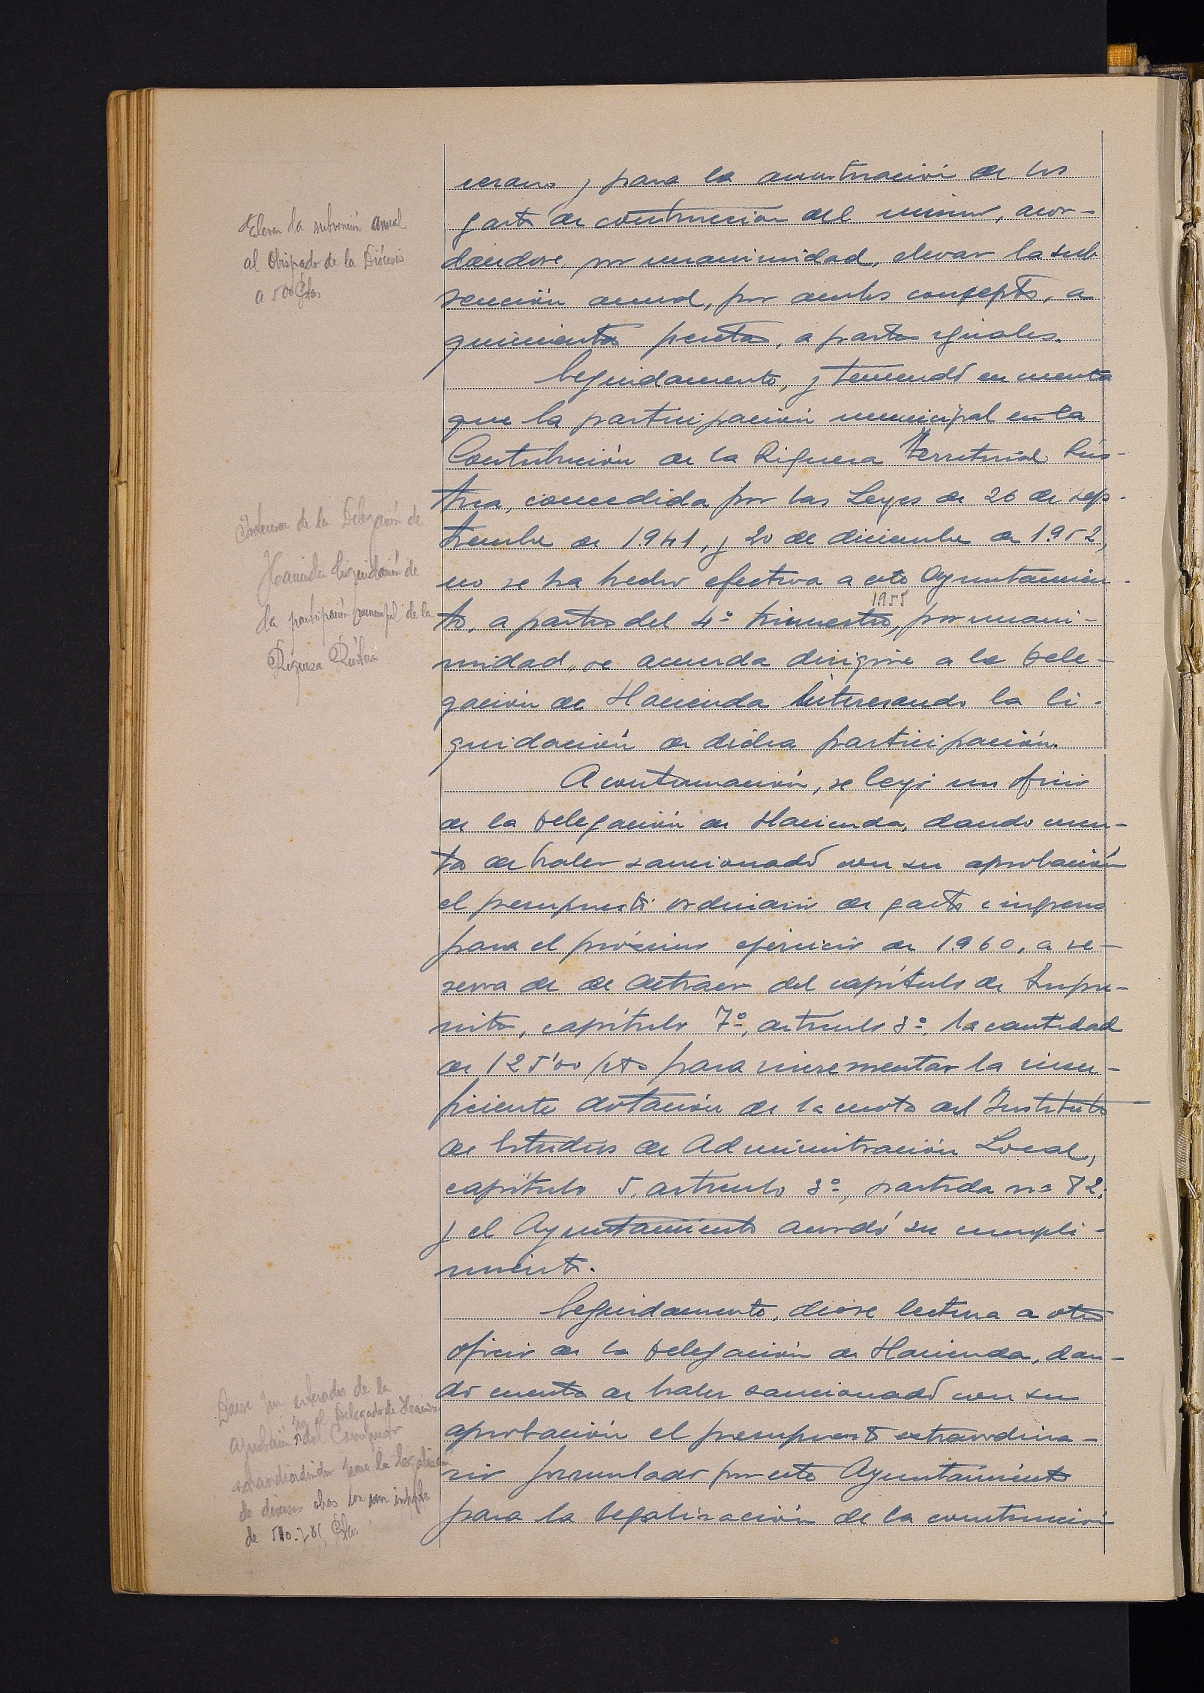 verano, y para la amortización de los
gastos de construcción del mismo, acor-
dándose, por unanimidad, elevar la sub
vención anual, por ambos conceptos, a
quinientas pesetas, a partes iguales.
Elevar la subvención anual
al Obispado de la Diócesis
a 500 Ptas
Seguidamente, y teniendo en cuenta
que la participación municipal en la
Contribución de la Riqueza Territorial Rús-
tica, concedida por las Leyes de 26 de sep-
tiembre de 1941, y 20 de diciembre de 1952,
no se ha hecho efectiva a este Ayuntamien-
to, a partir del 4º trimestre, por unani-
1958
midad, se acuerda dirigirse a la Dele-
gación de Hacienda interesando la li-
quidación de dicha participación.
Interesar de la Delegación de
Hacienda liquidación de
la participación municipal de la
Riqueza Rústica
A continuación, se leyó un oficio
de la Delegación de Hacienda, dando cuen-
ta de haber sancionado con su aprobación
el presupuesto ordinario de gastos e ingresos
para el próximo ejercicio de 1960, a re-
serva de de detraer del capítulo de Impre-
vistos, capítulo 7º, artículo 3º, la cantidad
de 125'00 ptas para incrementar la insu-
ficiente dotación de la cuota del Instituto
de Estudios de Administración Local,
capítulo 5. artículo 3º, partida nº 82;
y el Ayuntamiento acordó su cumpli-
miento.
Seguidamente, diose lectura a otro
oficio de la Delegación de Hacienda, dan-
do cuenta de haber sancionado con su
aprobación el presupuesto extraordina-
rio formulado por este Ayuntamiento
para la legalización de la construcción
Darse por enterados de la
aprobación por el Delegado de Hacienda
extraordinario para la legalización
de diversas obras con un importe
de Ptas